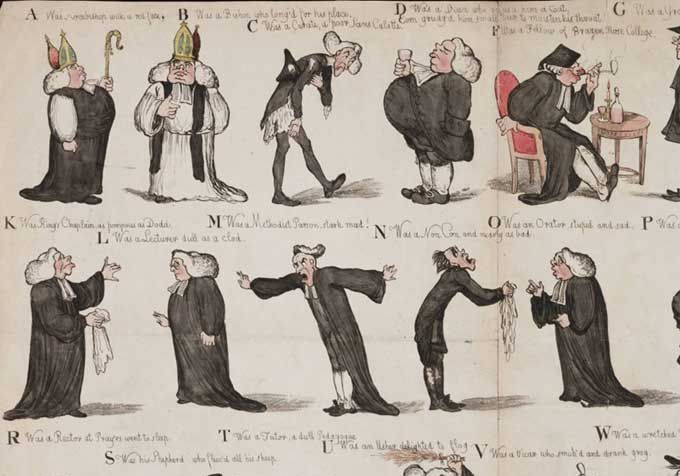 A Was Archbishop with a red face,
B Was a Bishop who long'd for his place,
C Was a Curate, a poor Sans Culotte
D Was a Dean who
him a Coat,
F Was a Fellow of Brazen Nose College
G Was a
K Was King's Chaplain as pompous as Dodd
L Was a Lecturer dull as a clod.
M Was a Methodist Parson, stark mad!
N Was a Non Con and nearly as bad
O Was an Orator, stupid and sad,
P Was
R Was a Rector at Pray'rs went to sleep.
S Was his Shepherd who fleec'd all his sheep.
T Was a Tutor, a dull Pedagogue
U Was an Usher delighted to flog
V Was a Vicar who smok'd and drank grog,
W Was a wretched